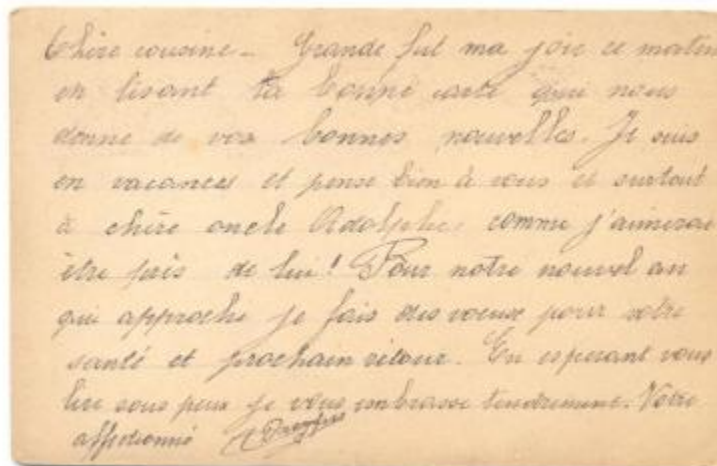 Chère cousine – Grande fut ma joie ce matin
en lisant ta bonne carte qui nous
donne de vos bonnes nouvelles. Je suis
en vacances et pense bien à vous et surtout
à chère oncle Adolphe comme j'aimerai
être près de lui ! Pour notre nouvel an
qui approche je fais des voeux pour votre
santé et prochain retour. En esperant vous
lire sous peu je vous embrasse tendrement. Votre
affectionné Dreyfus